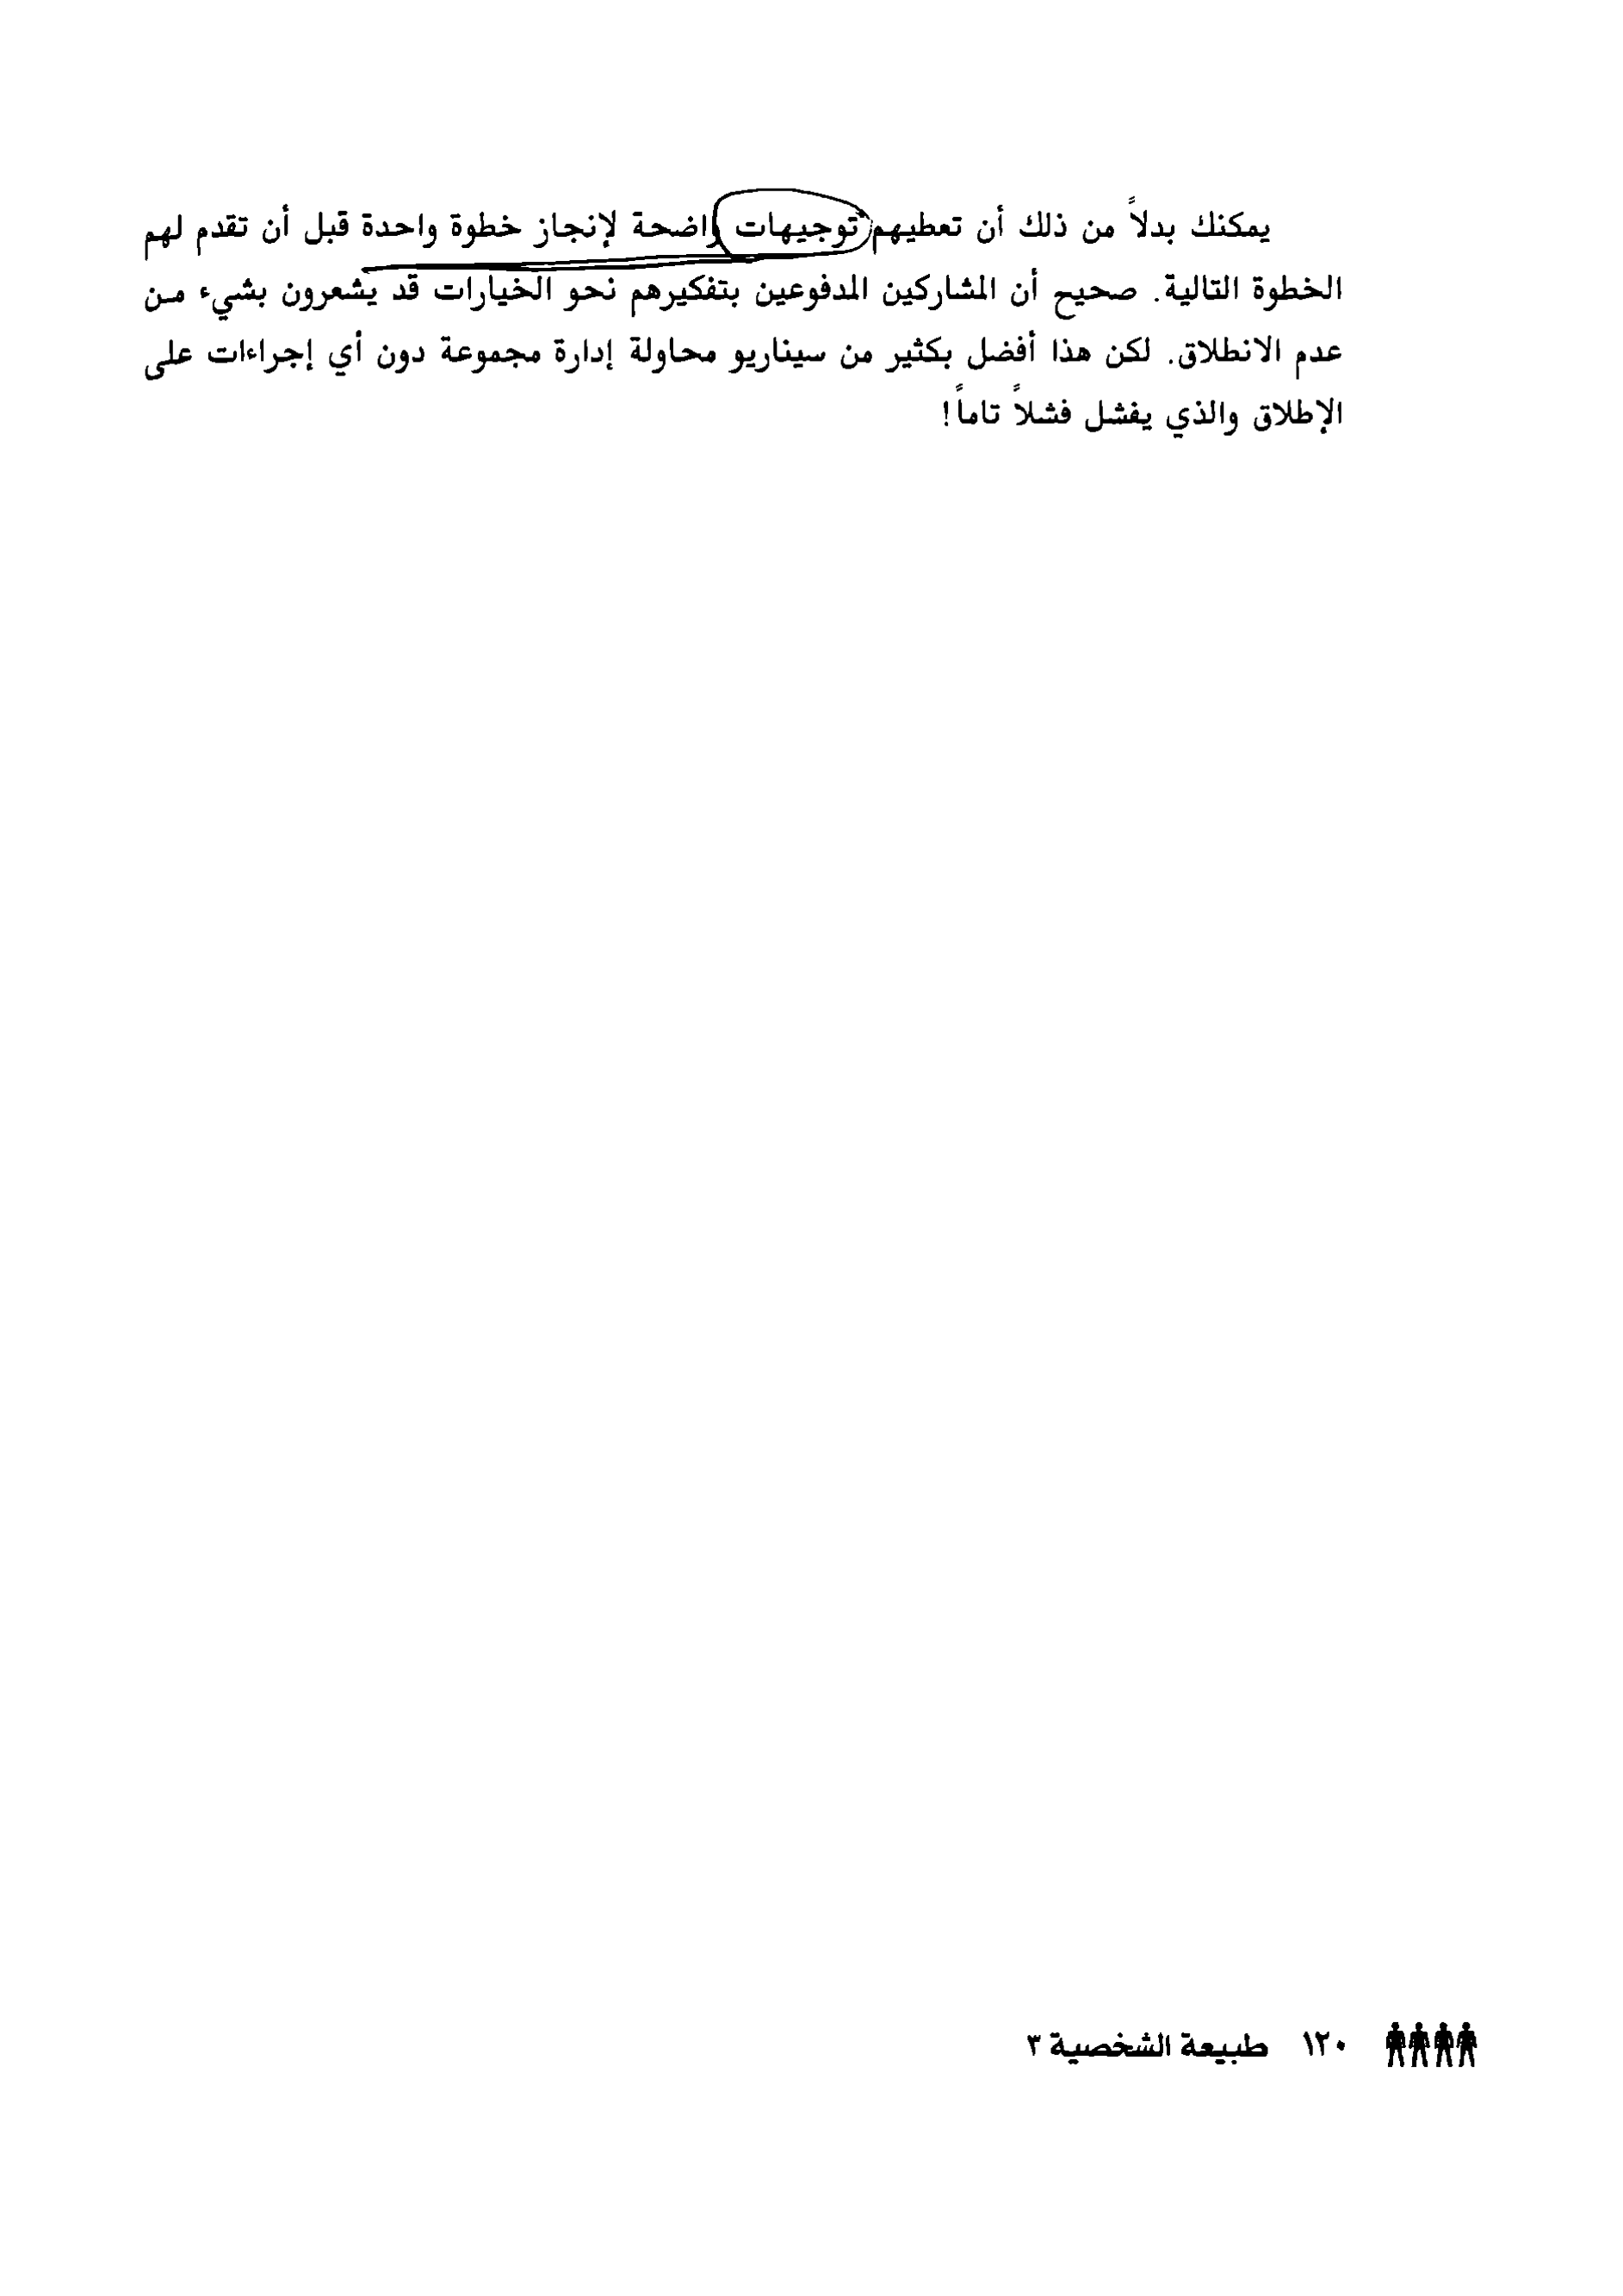 يمكنك بدلاً من ذلك أن تعطيهم توجيهات واضحة لإنجاز خطوة واحدة قبل أن تقدم لهم
الخطوة التالية. صحيح أن المشاركين المدفوعين بتفكيرهم نحو الخيارات قد يشعرون بشيء من
عدم الانطلاق. لكن هذا أفضل بكثير من سيناريو محاولة إدارة مجموعة دون أي إجراءات على
الإطلاق والذي يفشل فشلاً تاماً!
١٢٠ طبيعة الشخصية ٣